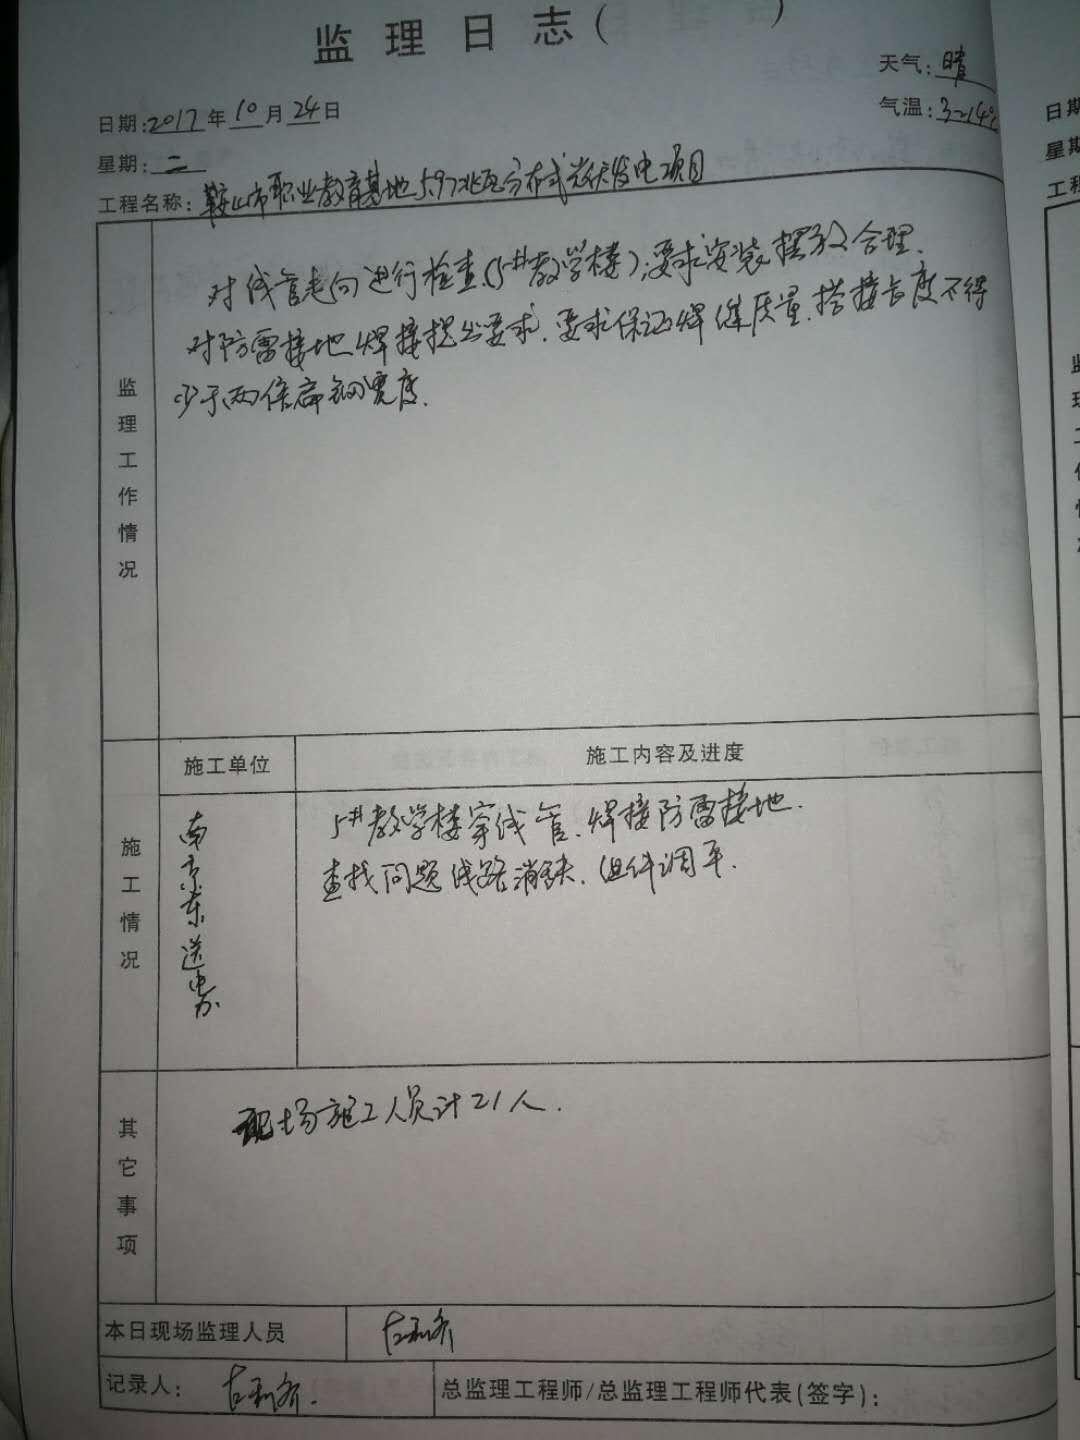 监理日志(
天气:晴
日期:2017年10月24日
气温:3~14℃
星期:二
工程名称:鞍山市职业教育基地5.97兆瓦分布式光伏发电项目
监理工作情况
对线管走向进行检查(5#教学楼),要求安装摆放合理.
对防雷接地焊接提出要求.要求保证焊缝质量.搭接长度不得
少于两倍扁钢宽度.
施工情况
施工单位
施工内容及进度
南京东送电力
5#教学楼穿线管.焊接防雷接地.
查找问题线路消缺.组件调平.
其它事项
现场施工人员计21人.
本日现场监理人员
记录人:
总监理工程师/总监理工程师代表(签字):